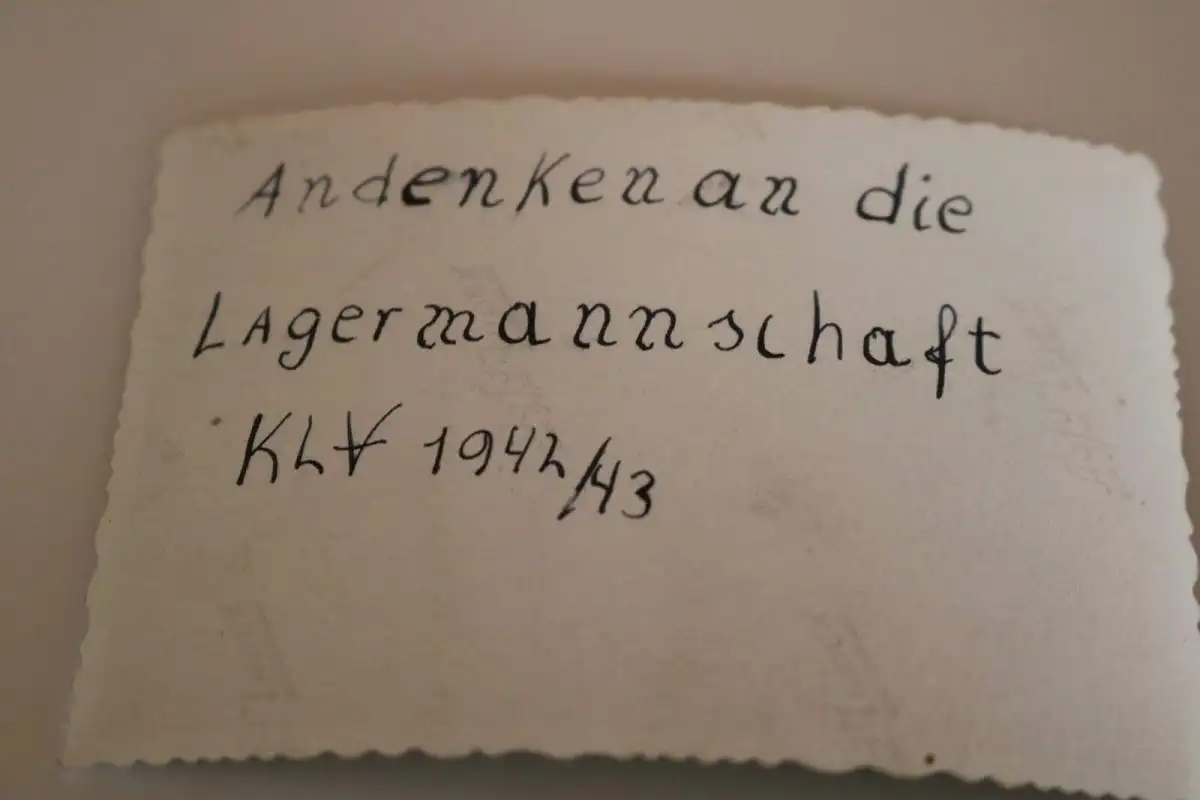 Andenken an die
Lagermannschaft
KLV 1942/43